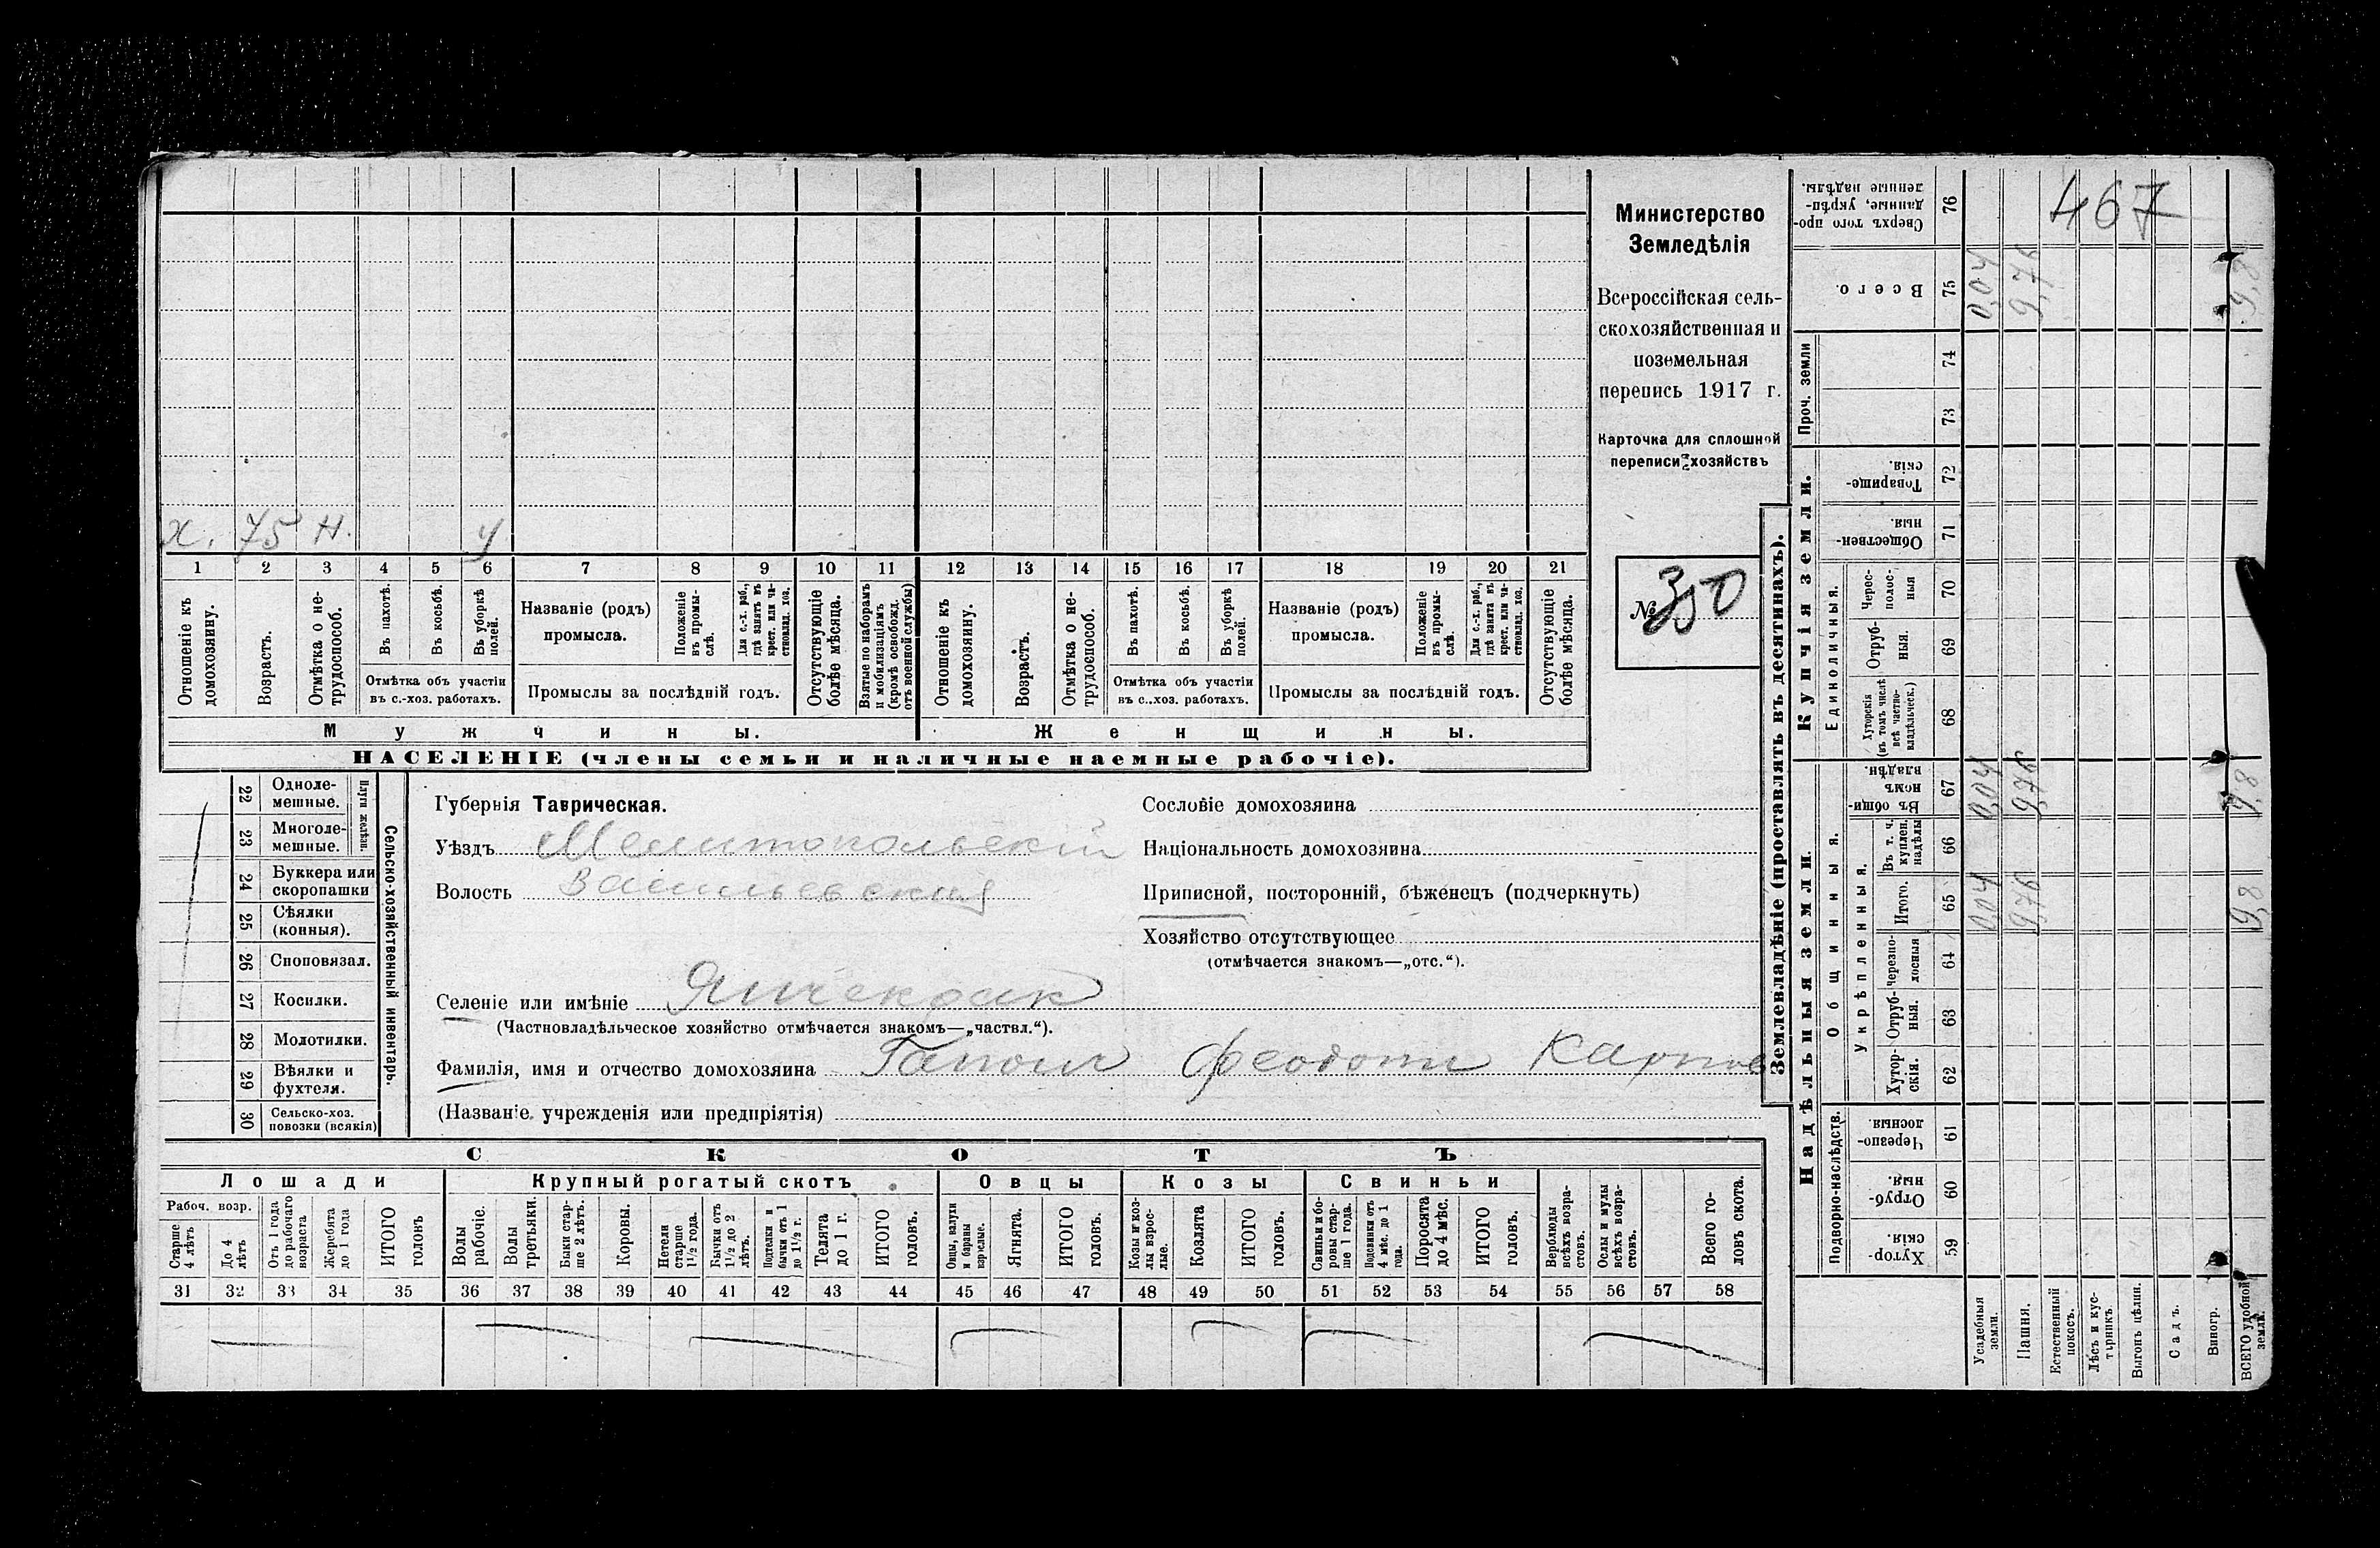 467
Министерство
Земледѣлія
Всероссійская сель-
скохозяйственная и
поземельная
перепись 1917 г.
Карточка для сплошной
переписи хозяйствъ
№ 350
х. 75 Н. У
1 2 3 4 5 6 7 8 9 10 11 12 13 14 15 16 17 18 19 20 21
Отношеніе къ домохозяину.
Возрастъ.
Отмѣтка о не-трудоспособ.
Въ пахотѣ.
Въ косьбѣ.
Въ уборкѣ полей.
Отмѣтка объ участіи
въ с.-хоз. работахъ.
Названіе (родъ)
промысла.
Положеніе въ промы-слѣ.
Для с.-х. раб., гдѣ занятъ въ крест. или ча-стновлад. хоз.
Промыслы за послѣдній годъ.
Отсутствующіе болѣе мѣсяца.
Взятые по наборамъ и мобилизаціямъ (кромѣ освобожд. отъ военной службы)
Отношеніе къ домохозяину.
Возрастъ.
Отмѣтка о не-трудоспособ.
Въ пахотѣ.
Въ косьбѣ.
Въ уборкѣ полей.
Отмѣтка объ участіи
въ с.-хоз. работахъ.
Названіе (родъ)
промысла.
Положеніе въ промы-слѣ.
Для с.-х. раб., гдѣ занята въ крест. или ча-стновлад. хоз.
Промыслы за послѣдній годъ.
Отсутствующіе болѣе мѣсяца.
Мужчины.
Женщины.
НАСЕЛЕНІЕ (члены семьи и наличные наемные рабочіе).
22 Однолемешные.
23 Многолемешные.
Плуги желѣзн.
24 Буккера или скоропашки
25 Сѣялки (конныя).
26 Сноповязал.
27 Косилки.
28 Молотилки.
29 Вѣялки и фухтеля.
30 Сельско-хоз. повозки (всякія)
Сельско-хозяйственный инвентарь.
Губернія Таврическая.
Уѣздъ Мелитопольскій
Волость Васильевская
Сословіе домохозяина
Національность домохозяина
Приписной, посторонній, бѣженецъ (подчеркнуть)
Хозяйство отсутствующее
(отмѣчается знакомъ—„отс.“).
Селеніе или имѣніе
(Частновладѣльческое хозяйство отмѣчается знакомъ—„частвл.“).
Фамилія, имя и отчество домохозяина Гапон Феодотъ Карпов
(Названіе учрежденія или предпріятія)
СКОТЪ
Лошади Крупный рогатый скотъ Овцы Козы Свиньи
Рабоч. возр.
Старше 4 лѣтъ
До 4 лѣтъ
Отъ 1 года до рабочаго возраста
Жеребята до 1 года
ИТОГО головъ
Волы рабочіе.
Волы третьяки.
Быки стар-ше 2 лѣтъ.
Коровы.
Нетели старше 1½ года.
Бычки отъ 1½ до 2 лѣтъ.
Подтелки и бычки отъ 1 до 1½ г.
Телята до 1 г.
ИТОГО головъ.
Овцы, валухи и бараны взрослые.
Ягнята.
ИТОГО головъ.
Козы и коз-лы взрос-лые.
Козлята
ИТОГО головъ.
Свиньи и бо-ровы стар-ше 1 года.
Подсвинки отъ 4 мѣс. до 1 года.
Поросята до 4 мѣс.
ИТОГО головъ.
Верблюды всѣхъ возра-стовъ.
Ослы и мулы всѣхъ возра-стовъ.
Всего го-ловъ скота.
31 32 33 34 35 36 37 38 39 40 41 42 43 44 45 46 47 48 49 50 51 52 53 54 55 56 57 58
Землевладѣніе (проставлять въ десятинахъ).
Сверхъ того про-данные, укрѣп-ленные надѣлы. 76
Всего. 75 0,04 9,76 9,8
Проч. земли
74
73
Купчія земли.
Товарище-скія. 72
Обществен-ныя. 71
Единоличныя.
Черес-полос-ныя 70
Отруб-ныя. 69
Хуторскія (въ томъ числѣ всѣ частно-владѣльческ.) 68
Надѣльныя земли.
Общинныя.
Въ общин-номъ владѣн. 67 0,04 9,76 9,8
Укрѣпленныя.
Въ т. ч. куплен. надѣлы 66
Итого. 65 0,04 9,76 9,8
Черезпо-лосныя 64
Отруб-ныя. 63
Хутор-скія. 62
Подворно-наслѣдств.
Черезпо-лосныя. 61
Отруб-ныя. 60
Хутор-скія. 59
Усадебныя земли.
Пашня.
Естественный покосъ.
Лѣсъ и кус-тарникъ.
Выгонъ цѣлин.
Садъ.
Виногр.
ВСЕГО удобной земли.